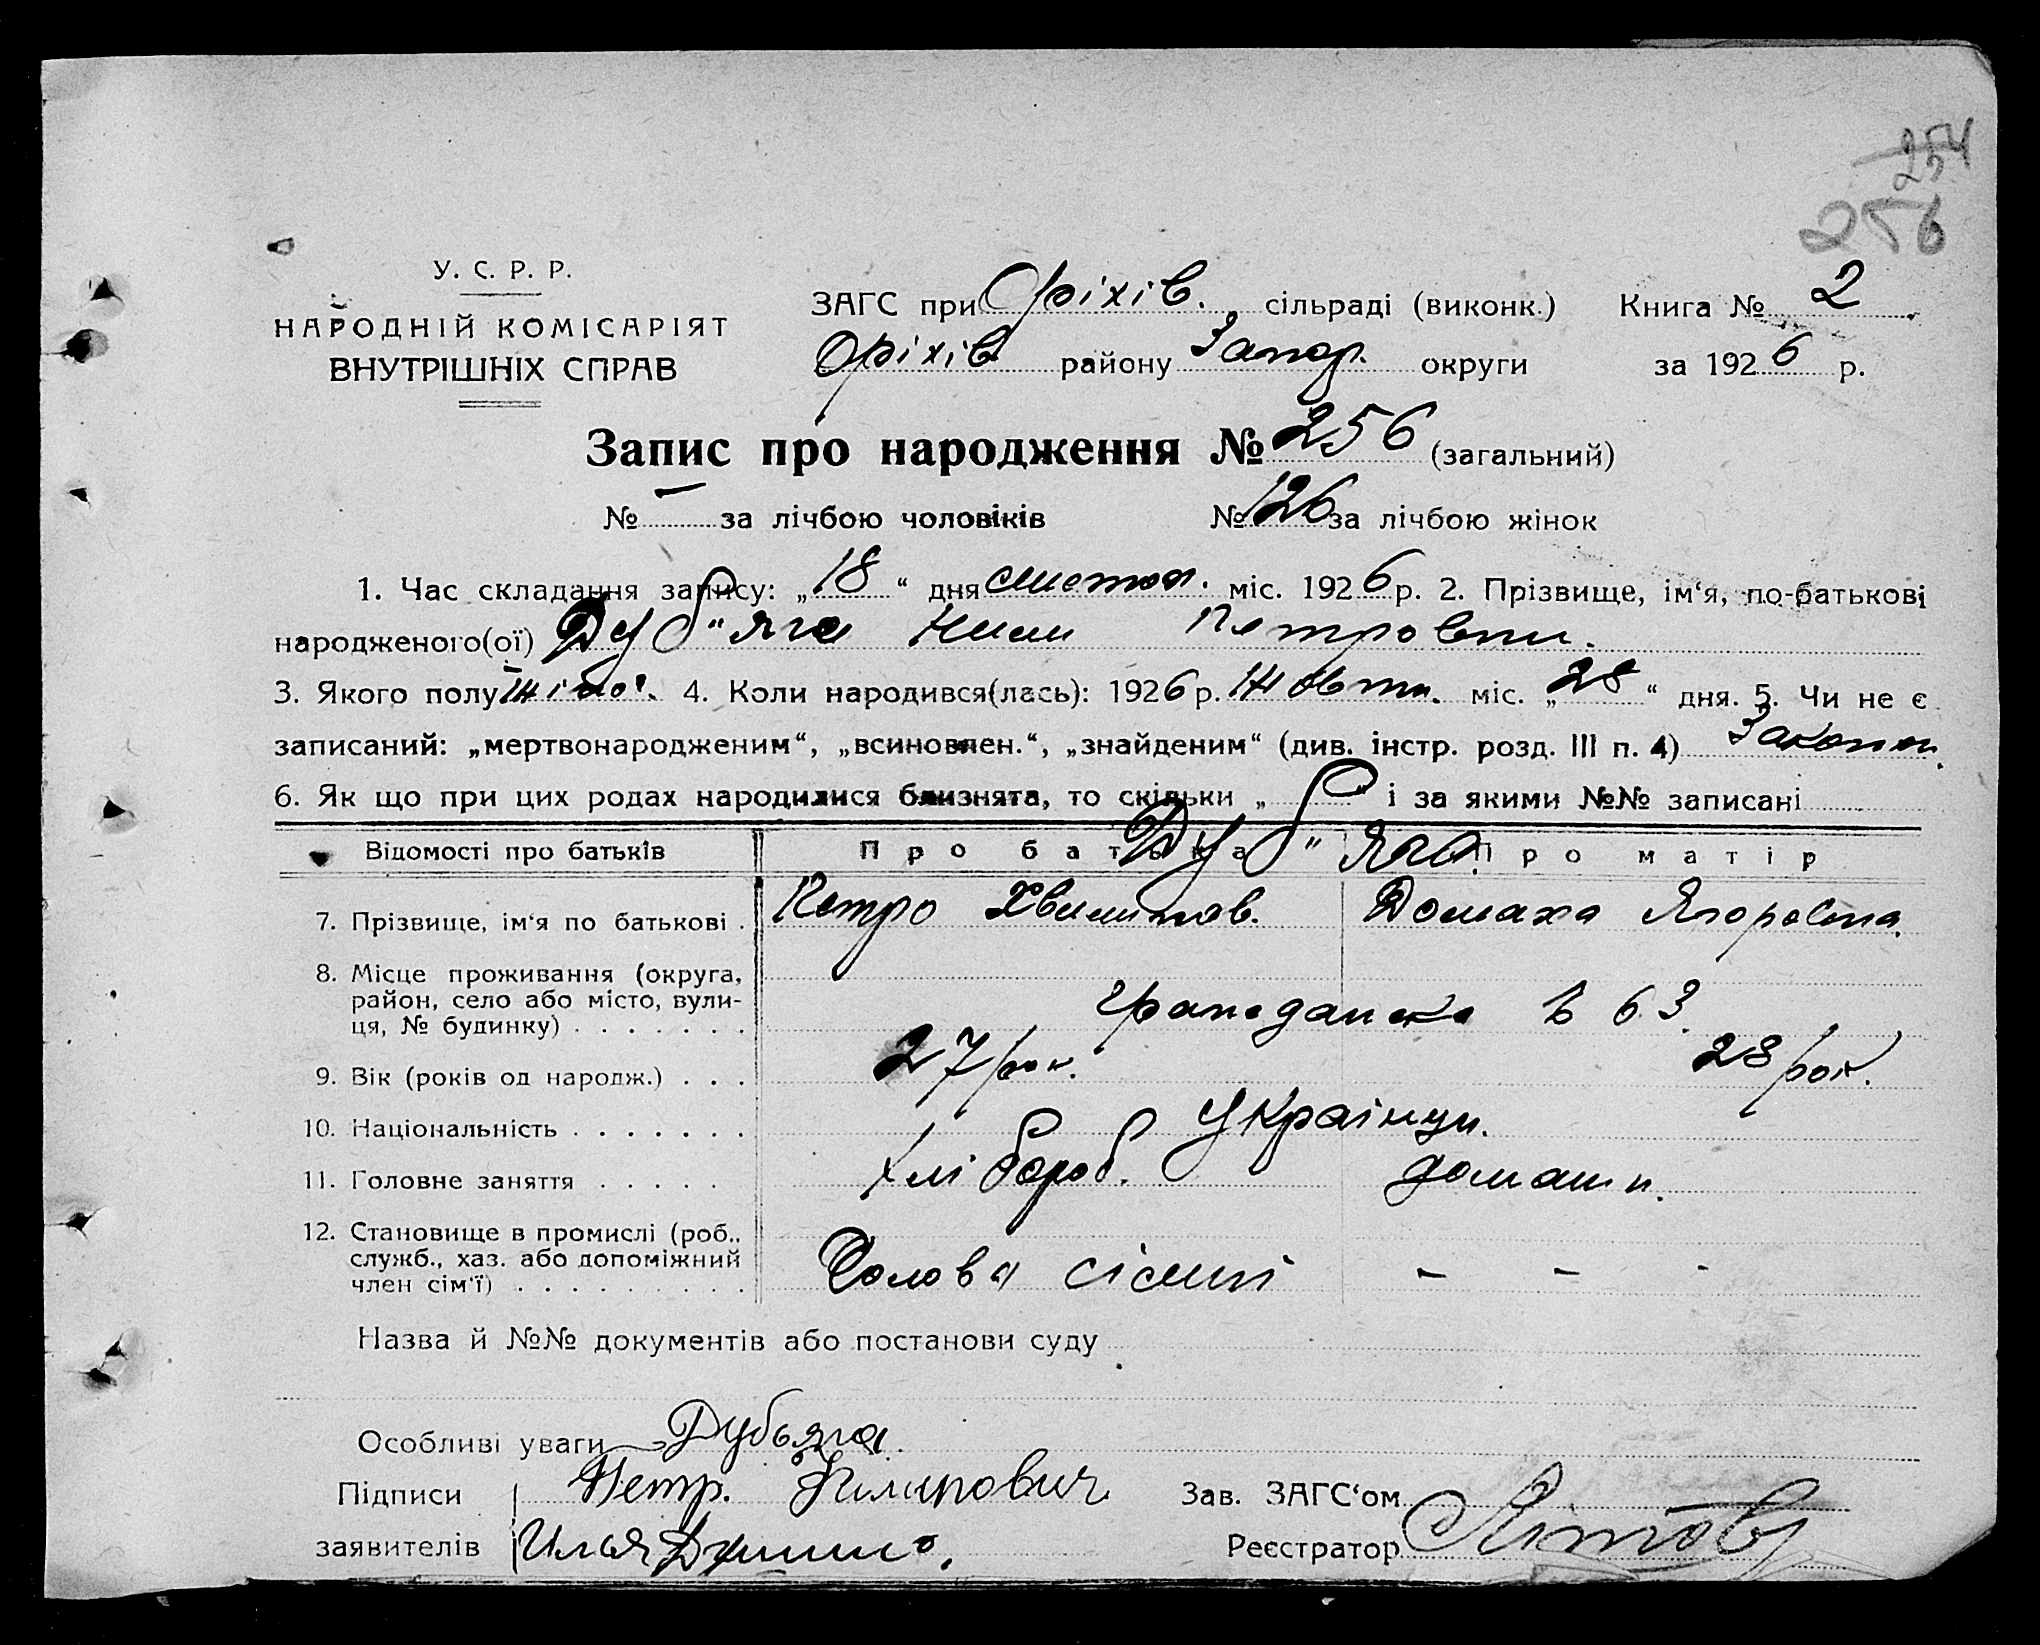 254
256
У. С. Р. Р.
НАРОДНІЙ КОМІСАРІЯТ
ВНУТРІШНІХ СПРАВ
ЗАГС при Оріхів. сільраді (виконк.) Книга № 2
Оріхів району Запор. округи за 1926 р.
Запис про народження № 256 (загальний)
№ — за лічбою чоловіків № 126 за лічбою жінок
1. Час складання запису: „18“ дня листоп. міс. 1926 р. 2. Прізвище, ім‘я, по-батькові
народженого(ої) Дуб"яга Петровни.
3. Якого полу жіно. 4. Коли народився(лась): 1926 р. Жовтн. міс. „28“ дня. 5. Чи не є
записаний: „мертвонародженим“, „всиновлен.“, „знайденим“ (див. інстр. розд. III п. 4) Законн.
6. Як що при цих родах народилися близнята, то скільки „ “ і за якими №№ записані
Відомості про батьків Про батька Про матір
Дуб"яга
7. Прізвище, ім‘я по батькові . Петро Хвилипов. Домаха Ягоровна.
8. Місце проживання (округа,
район, село або місто, вули-
ця, № будинку) . . . . . . . Гражданска 63.
9. Вік (років од народж.) . . . 27 рок. 28 рок.
10. Національність . . . . . . . Українци.
11. Головне заняття . . . . . Хлібороб. домашн.
12. Становище в промислі (роб.,
служб., хаз. або допоміжний
член сім‘ї) . . . . . . . . . Голова сімші — — -
Назва й №№ документів або постанови суду
Особливі уваги Дубьяга
Підписи Петр. Филипович Зав. ЗАГС‘ом
заявителів Илья Реєстратор